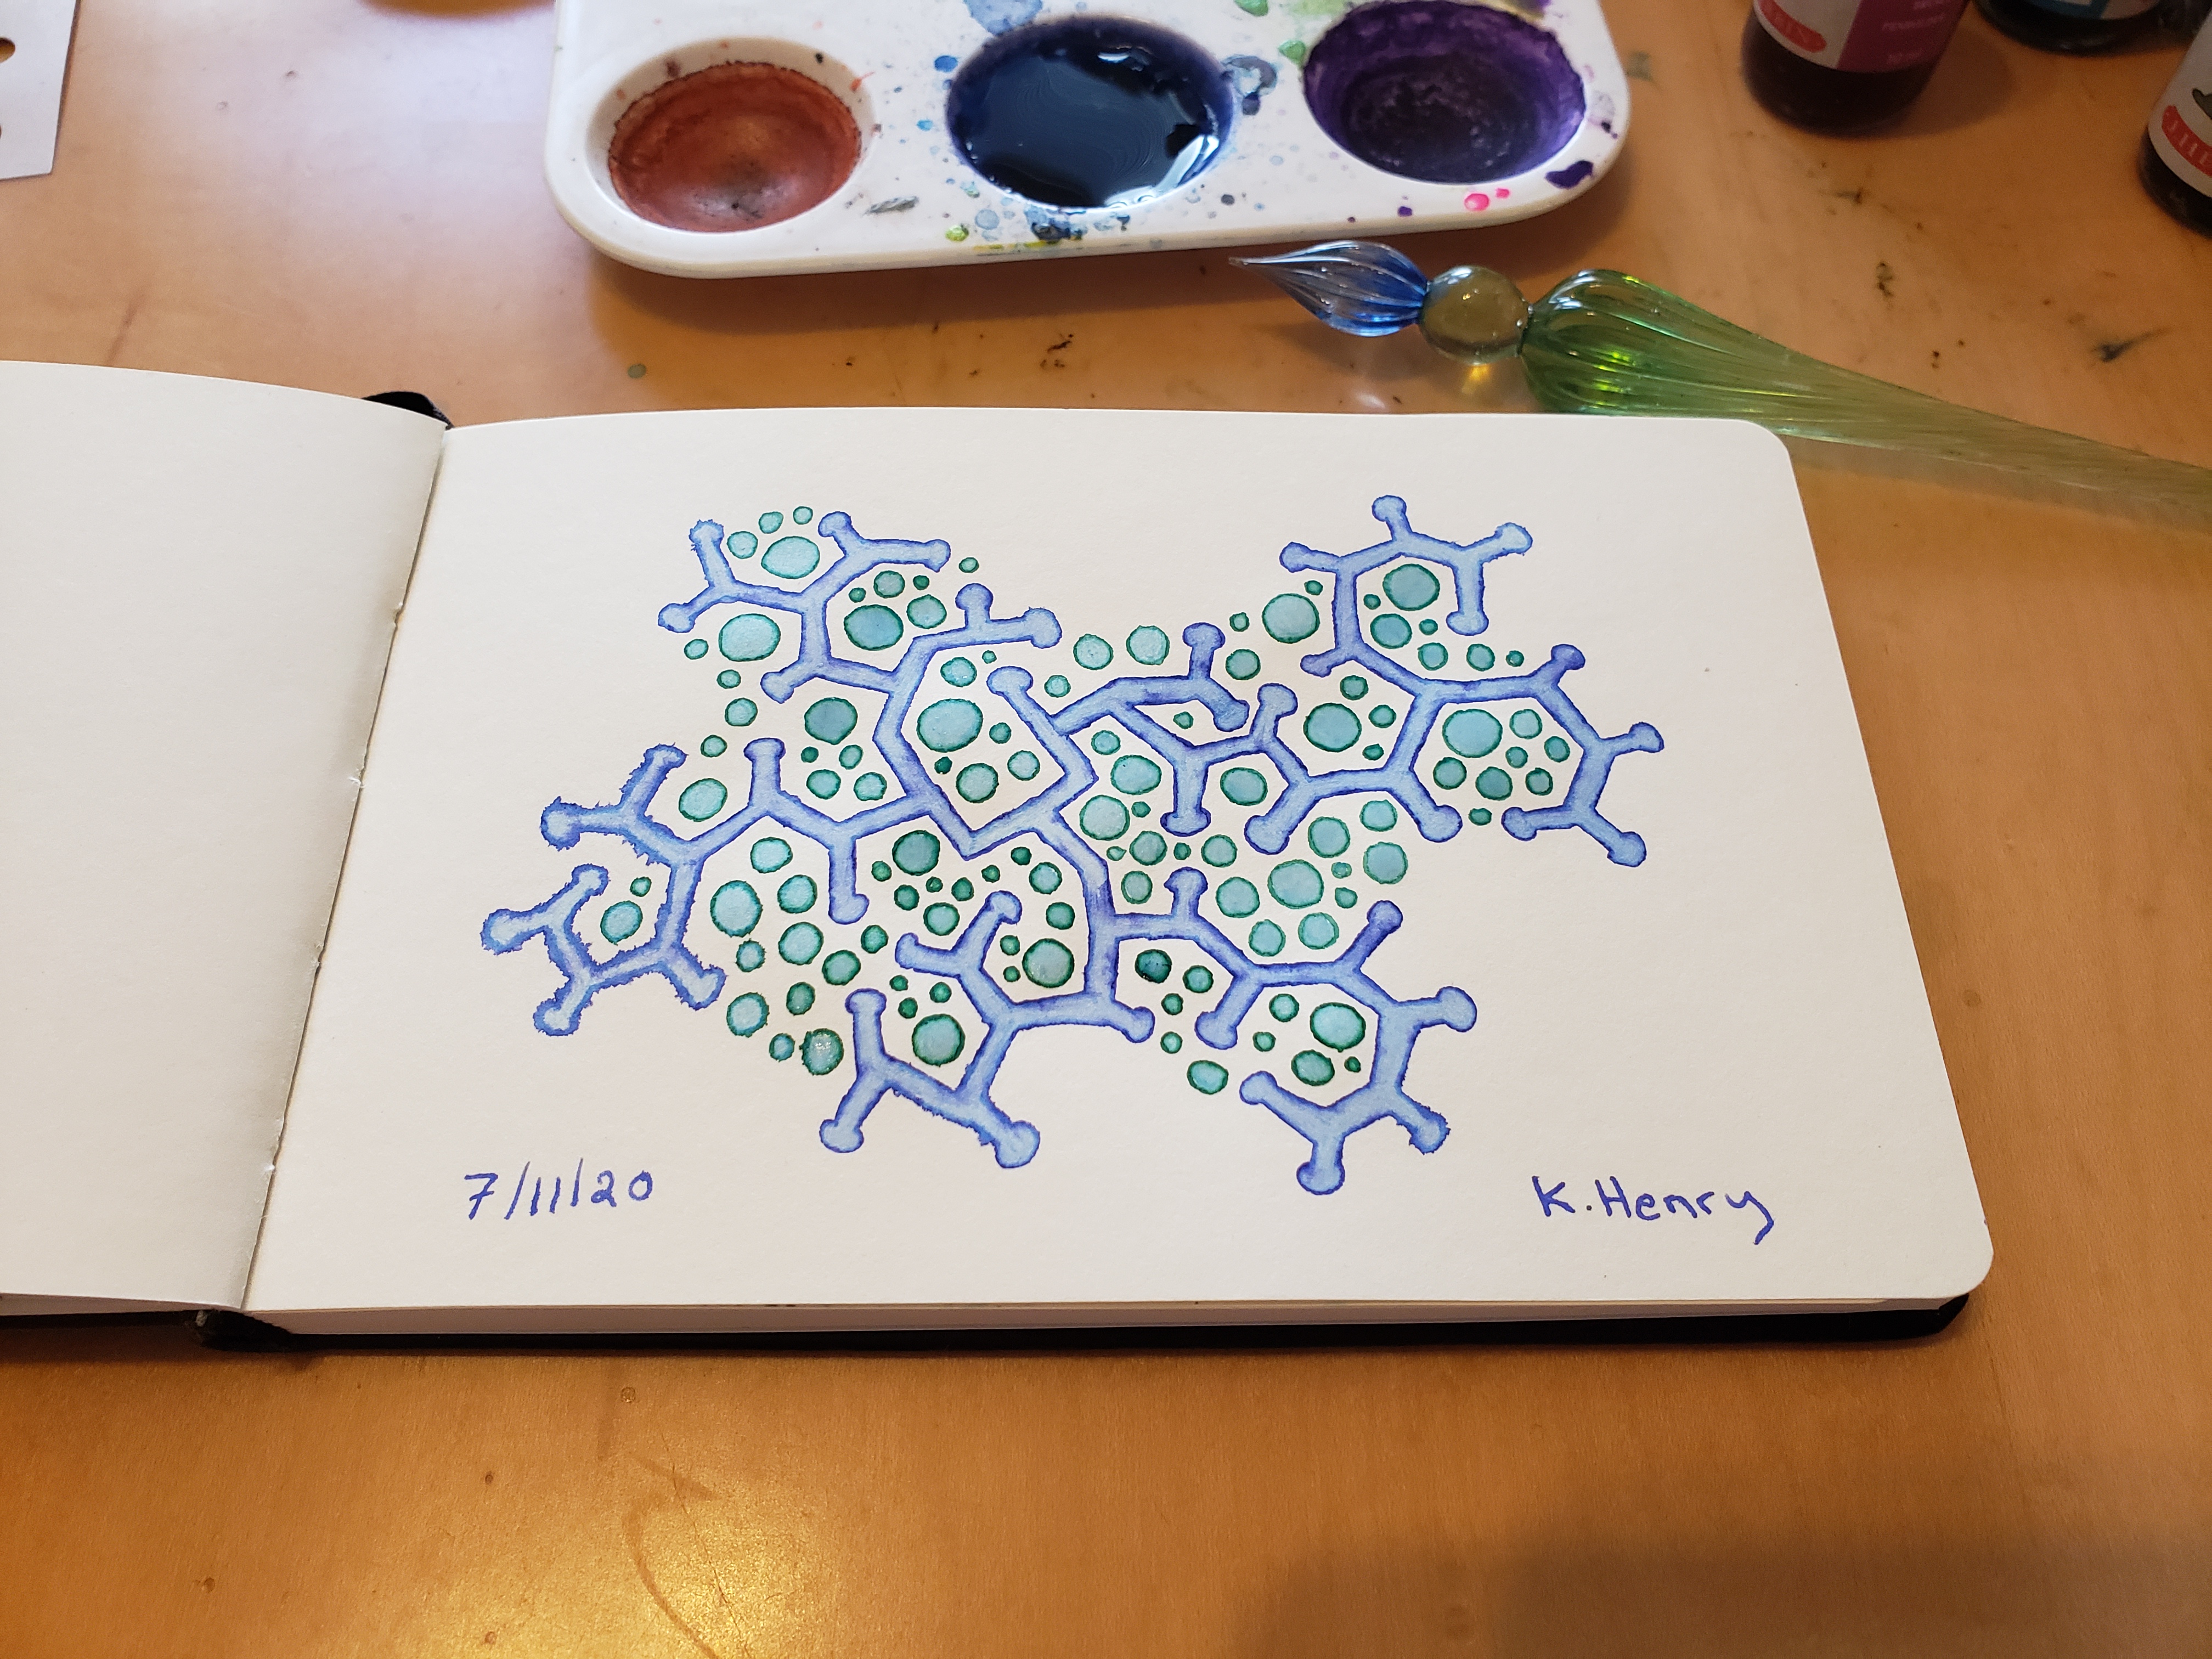 7/11/20
K. Henry